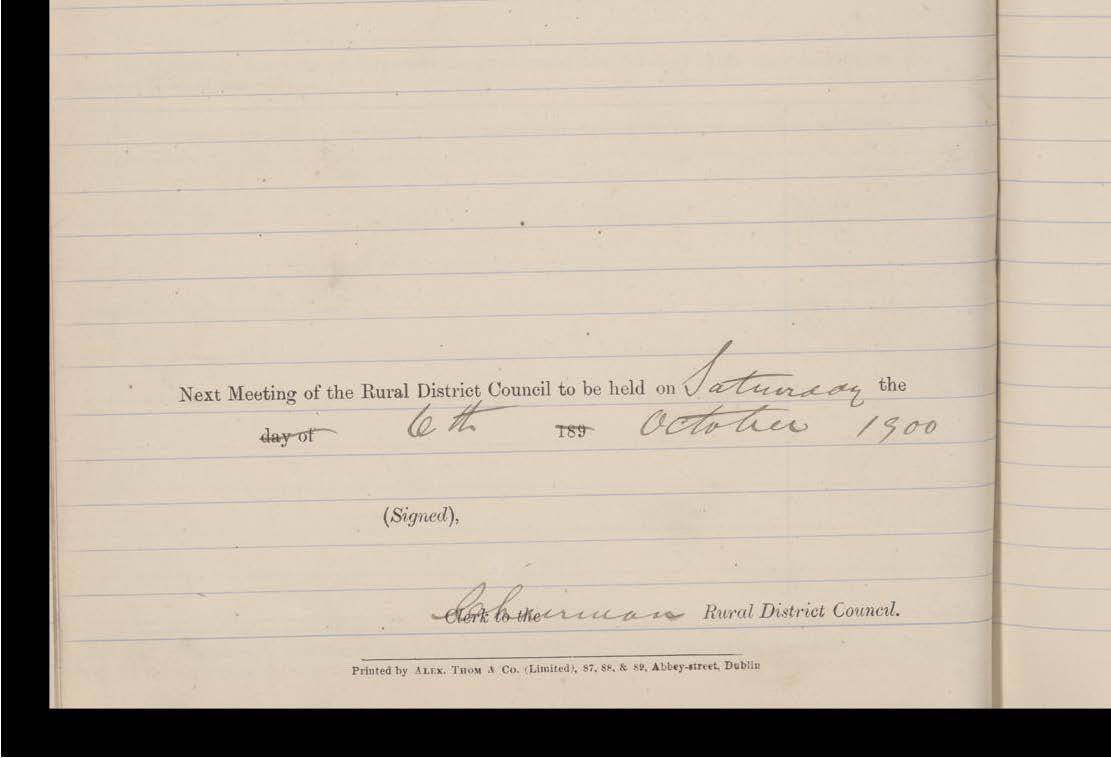 Next Meeting of the Rural District Council to be held on Saturday the
day of 6th 189 October 1900
(Signed),
Clerk to the Chairman Rural District Council.
Printed by ALEX. THOM & CO. (Limited), 87, 88, & 89, Abbey-street, Dublin